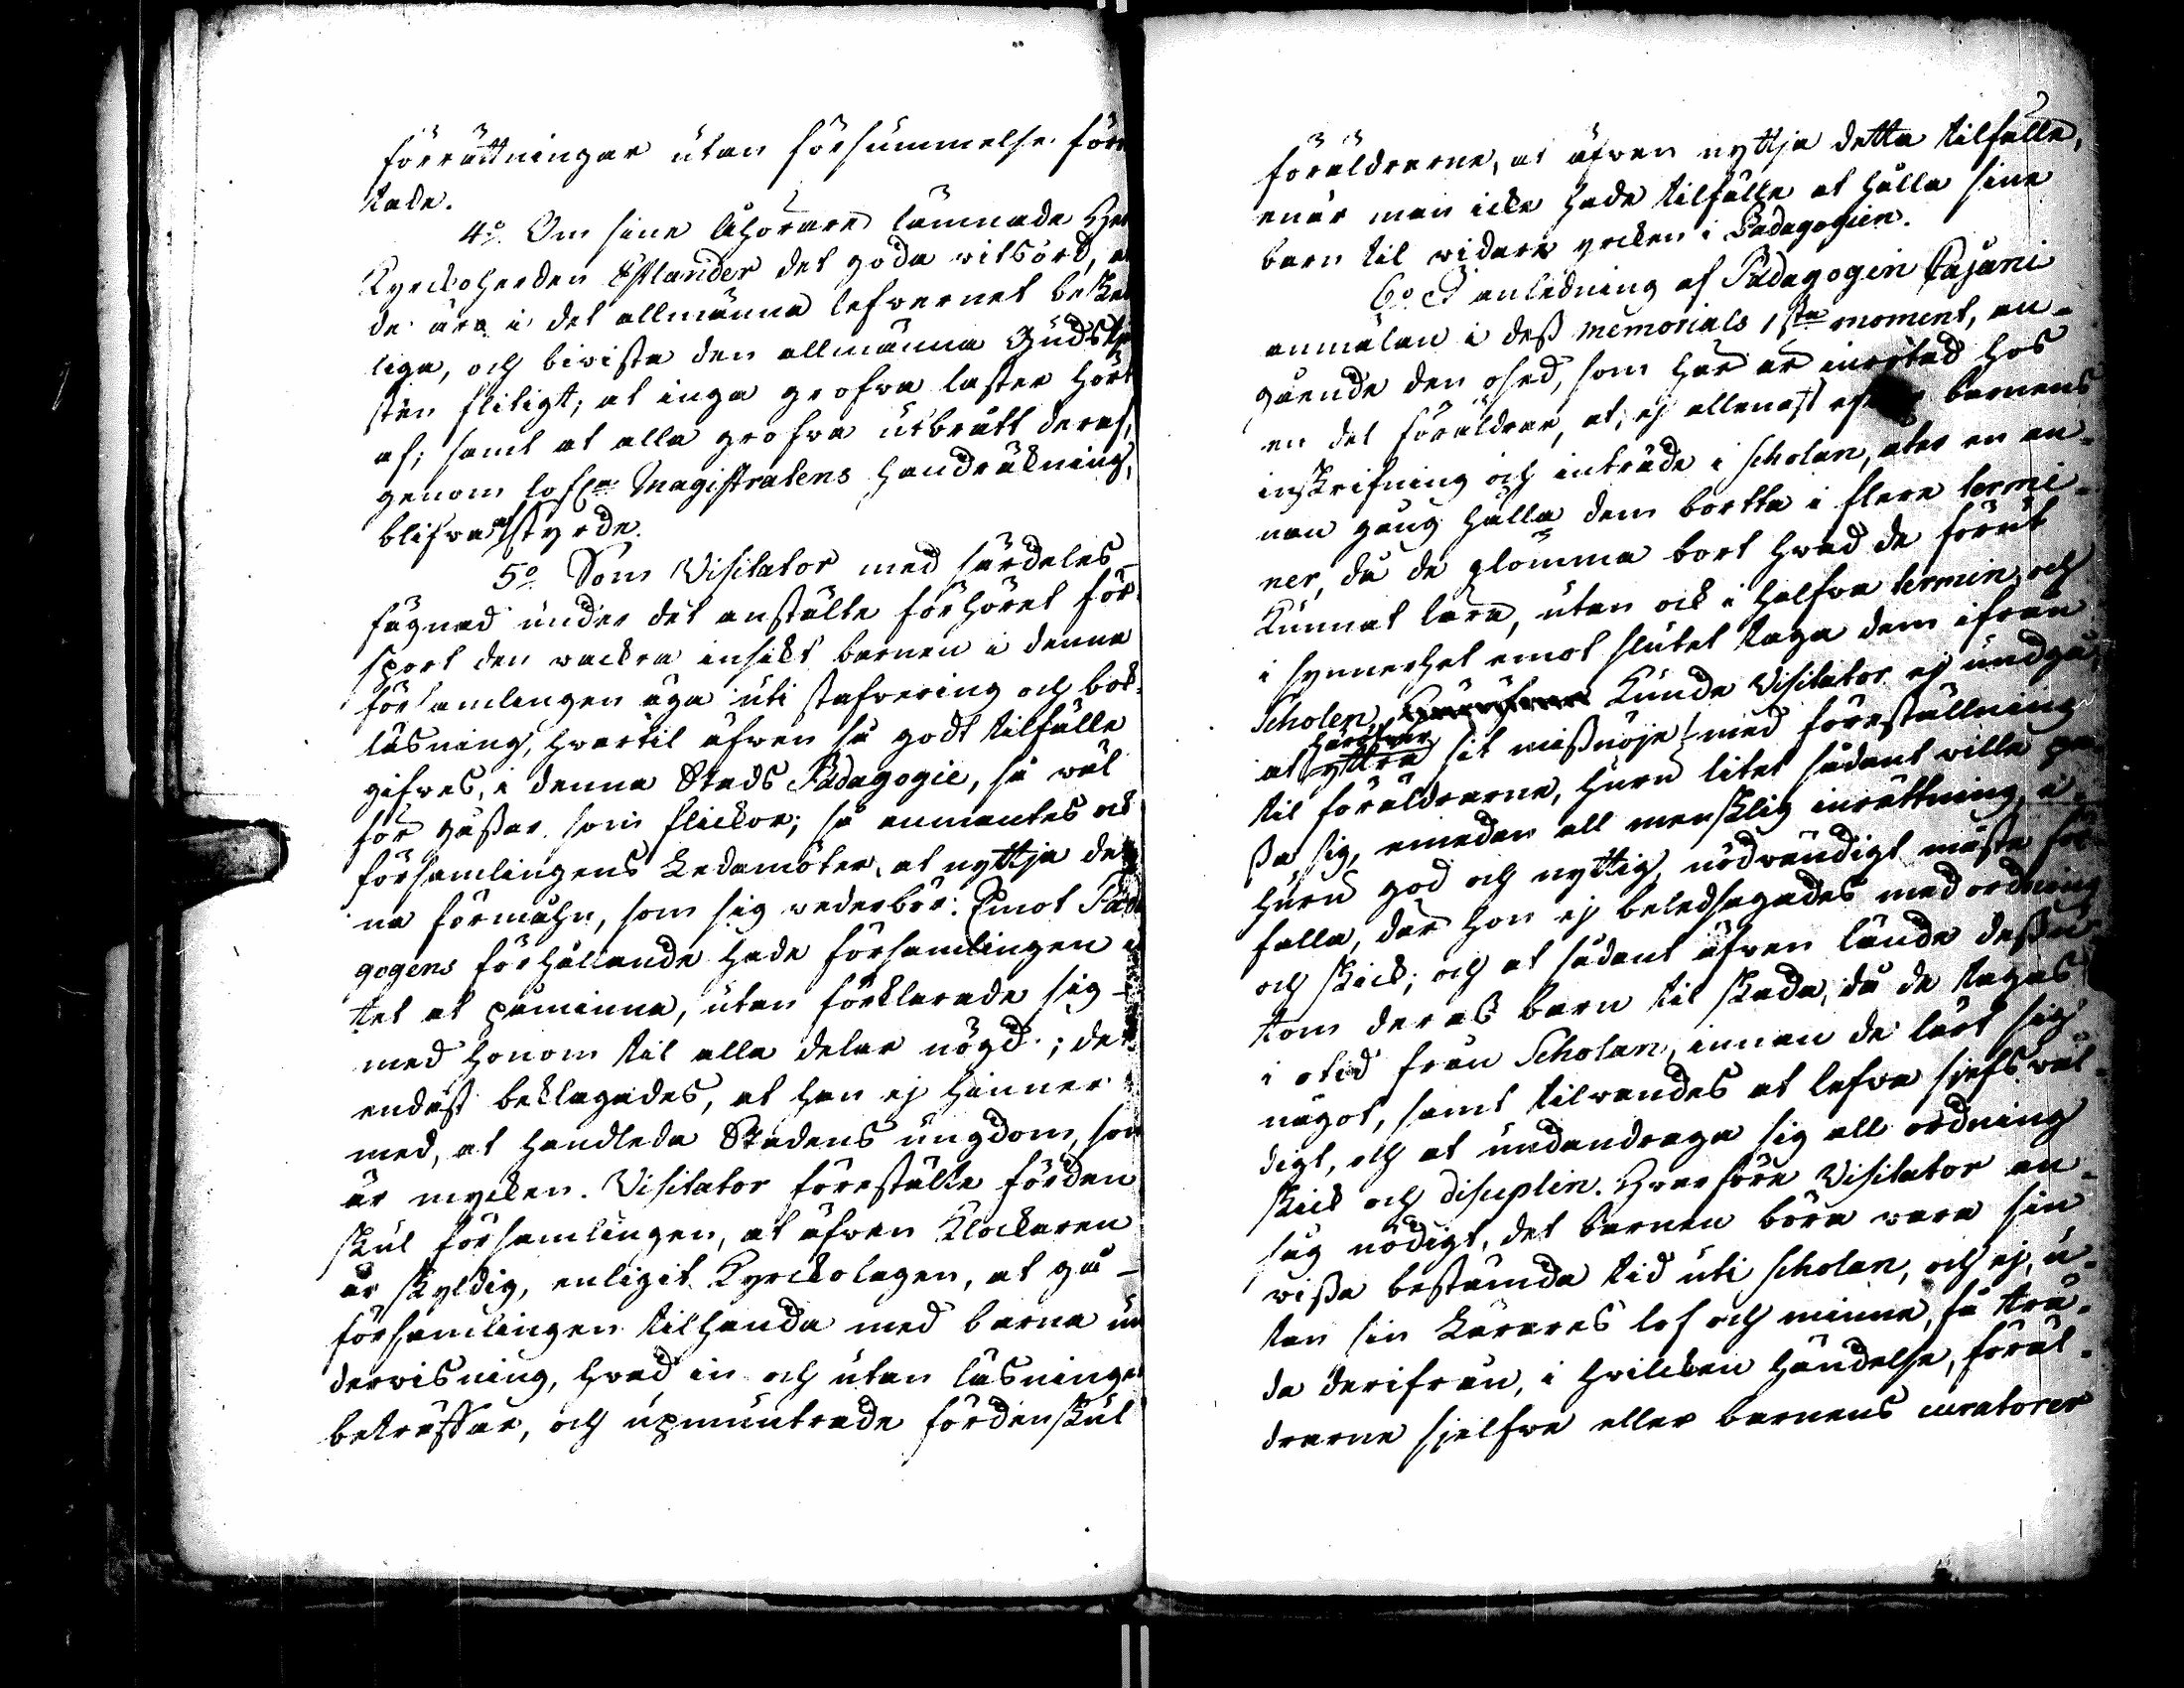 förrättningar utan försummelse för
tade.
4:o Om sine Åhörare lämnade Her
Kyrckoherden Estlander det goda witsörd, a
de äro i det allmänna lefwernet beske
liga, och biwista den allmänna Gudstje
sten flitigt; at inga grofwa laster hört
af; samt at alla grofwa utbrått deraf,
genom lofl:a Magistratens handräkning,
blifwa afstyrde.
5:o Som Visitator med särdeles
fägnad under det anstälte förhöret för-
sport den wackra insikt barnen i denna
församlingen äga uti stafwering och bok-
läsning, hwartil äfwen så godt tilfälle
gifwes, i denna Stads Pædagogie, så wäl
för gåßar som flickor; så anmantes ock
församlingens Ledamöter, at nyttja den
na förmohn, som sig wederbör. Emot Pæda
gogens förhållande hade församlingen in
tet at påminna, utan förklarade sig
med honom til alla delar nögd; det
endast beklagades, at han ej hinner
med, at handleda Stadens ungdom, som
är mycken. Visitator förestälte förden
skul församlingen, at äfwen Klockaren
är skyldig, enligit Kyrckolagen, at gå
församlingen tilhanda med barna un
derwisning, hwad in och utan läsningen
beträffar, och upmuntrade fördenskul
föräldrarne, at äfwen nyttja detta tilfälle,
enär man icke hade tilfälle at hålla sine
barn til widare yrcken i Pædagogien.
6:o I anledning af Pædagogen Cajani
anmälan i deß memorials 1sta moment, an-
gående den osed, som här är inrotad hos
en del föräldrar, at, ej allenast efter barnens
inskrifning och inträde i scholan, åter en an-
nan gång hålla dem bortta i flere termi-
ner, då de glömma bort hwad de förut
kunnat lära, utan ock i halfwa termin, och
i synnerhet emot slutet taga dem ifrån
Scholen, kunde Visitator ej undgå,
at häröfwer yttra sit mißnöje med föreställning
til föräldrarne, huru litet sådant wille pa-
ßa sig, emedan all mensklig inrättning, e-
huru god och nyttig, nödwändigt måste för
falla, där hon ej beledsagades med ordning
och skick; och at sådant äfwen lände deßu
tom deras barn til skada, då de tagas
i otid från Scholan, innan de lärt sig
något, samt tilwandes at lefwa sjelfswål-
digt, och at undandraga sig all ordning
skick och disciplin. Hwarföre Visitator an-
såg nödigt, det barnen böra wara sin
wißa bestämda tid uti scholan, och ej, u-
tan sin Lärares lof och minne, få trä-
da derifrån, i hwilcken händelse, föräl-
drarne sjelfwe eller barnens curatorer